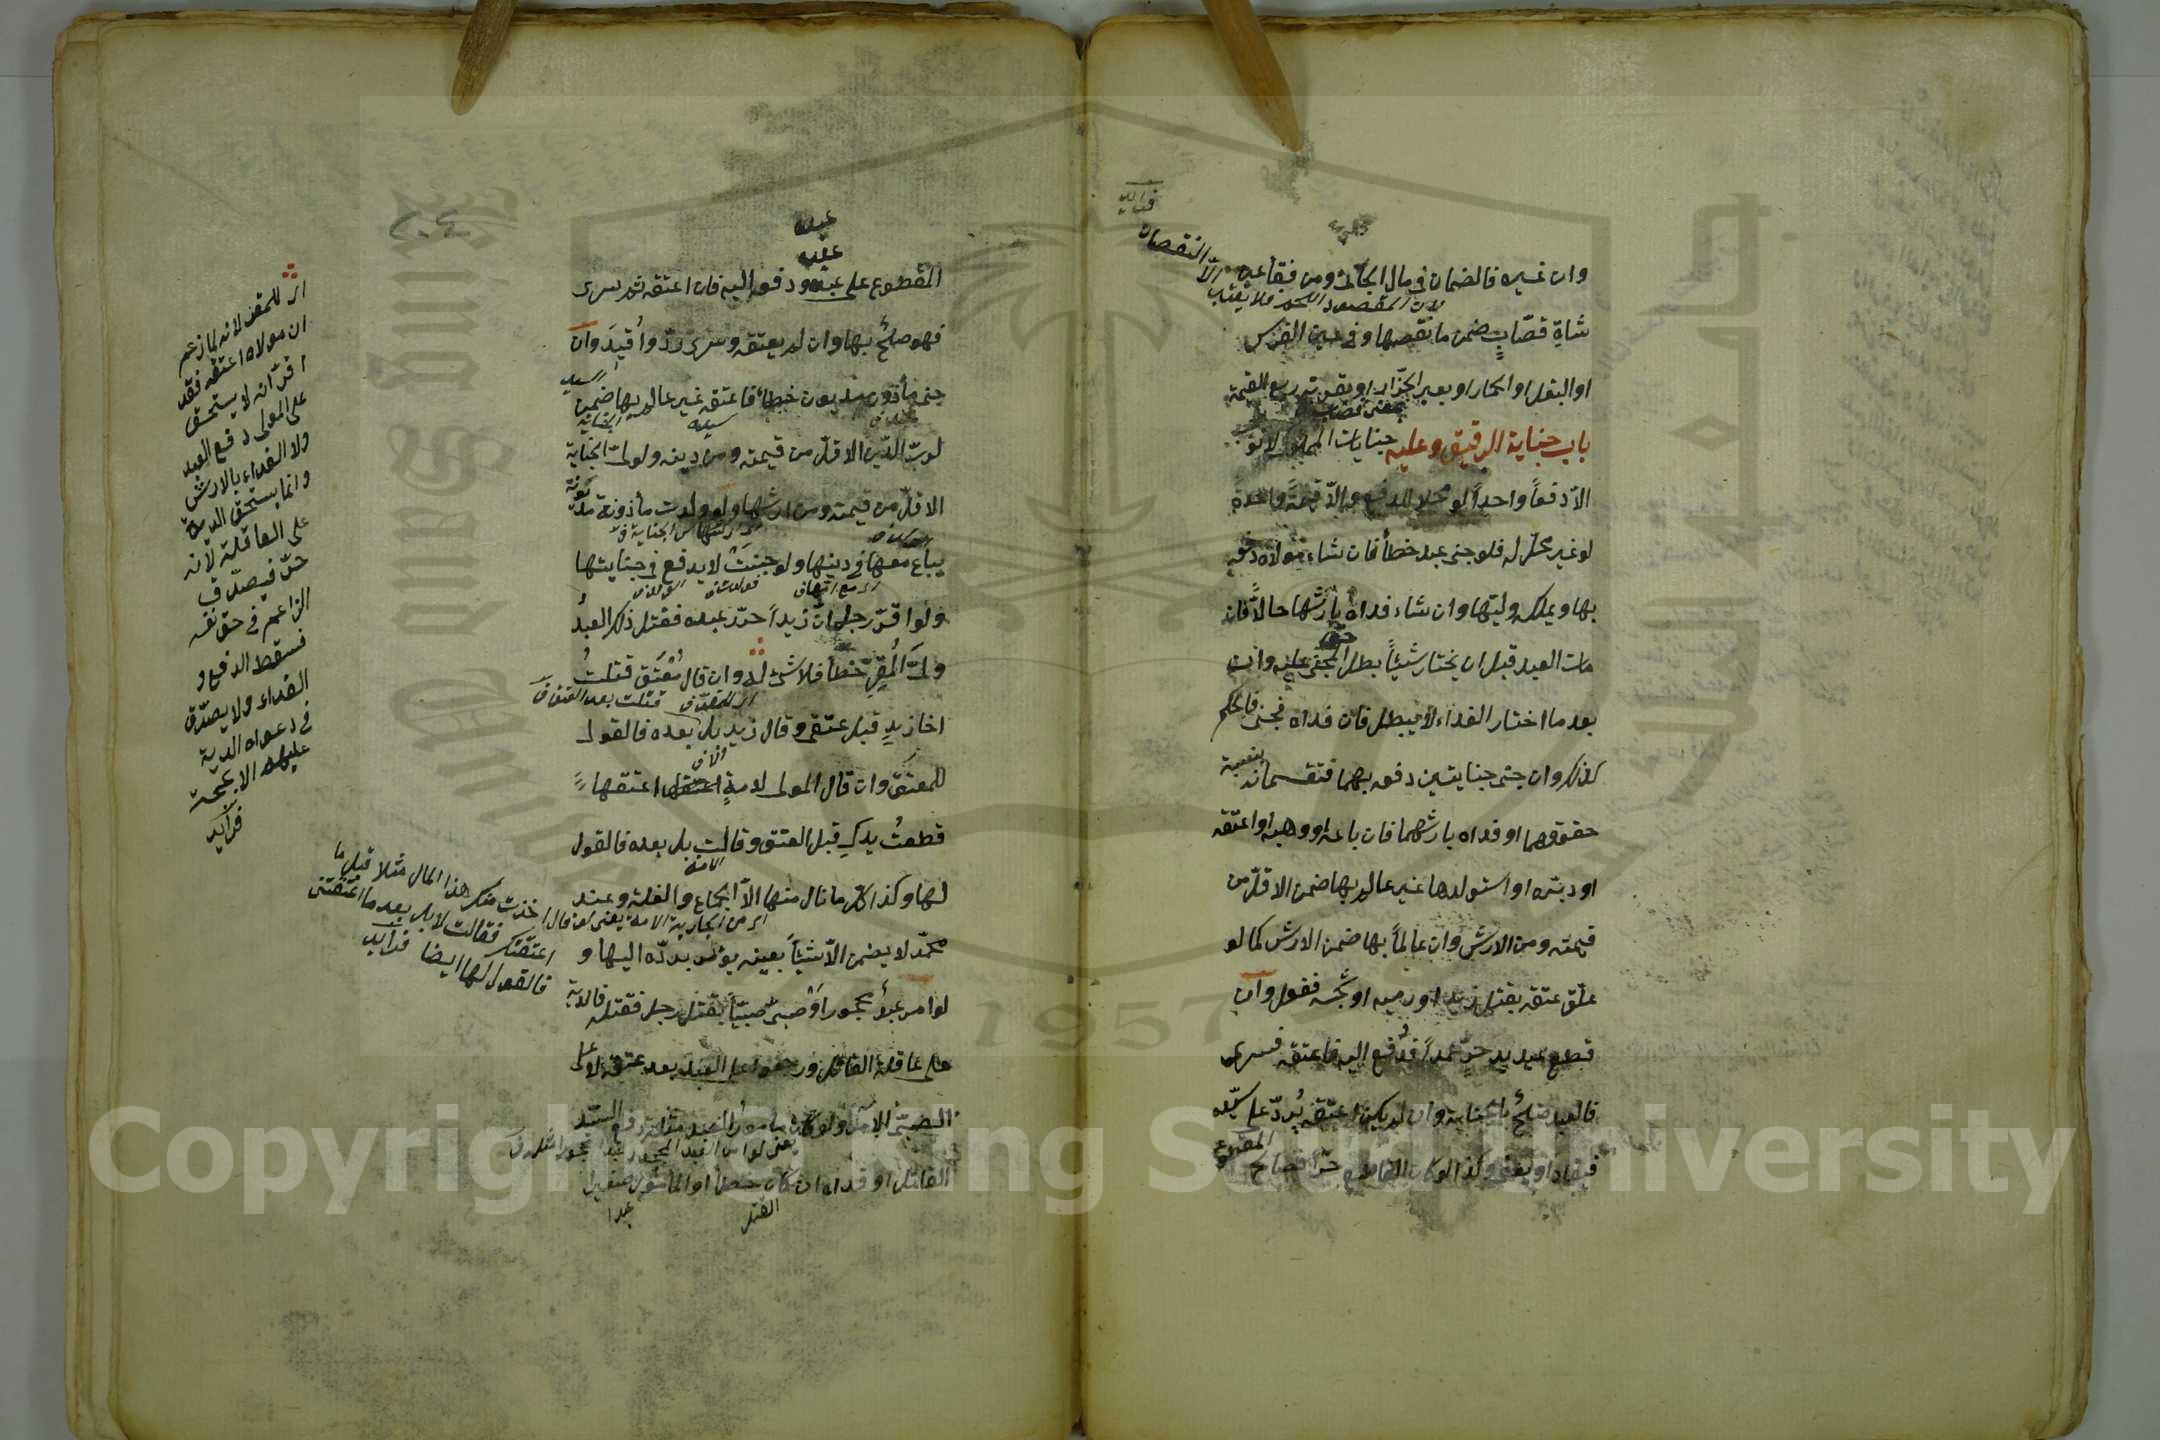 وان غيره فالضمان في مال الجاني ومن فقأ عين
شاة قصّاب ضمن ما نقصها وفي عين الفرس
او البغل او الحمار او بعير الجزّار او بقرته ربع القيمة
باب جناية الرقيق وعليه جنايات المملوك لا توجب
الّا دفعاً واحداً لو محلا للدفع والّا قيمةً واحدةً
لو غير محل له فلو جنى عبد خطأ فان شاء مولاه دفعه
بها ويملكه وليّها وان شاء فداه بأرشها حالّاً فان
مات العبد قبل ان يختار شيئاً بطل حق المجني عليه وان
بعد ما اختار الفداء لا يبطل فان فداه فجنى فالحكم
كذلك وان جنى جنايتين دفعه بهما فتقسمانه بنسبة
حقوقهما او فداه بارشهما فان باعه او وهبه او اعتقه
او دبّره او استولدها غير عالم بها ضمن الاقلّ من
قيمته ومن الارش وان عالماً بها ضمن الارش كما لو
علّق عتقه بقتل زيد او رميه او شجّه ففعل وان
قطع عبد يد حرّ عمداً فدُفع اليه فاعتقه فسرى
فالعبد صلحٌ بالجناية وان لم يكن اعتقه يُردّ على سيّده
فيقاد او يعفى وكذا لو كان القاطع حرّاً فصالح المقطوع
الّا النقصان
لان المقصود اللحم فلا يعتبر
فرائد
عبده
المقطوع على عبده ودفعه اليه فان اعتقه ثم سرى
فهو صلحٌ بها وان لم يعتقه وسرى ردّ وأُقيدَ وان
جنى مأذون مديون خطأ فاعتقه غير عالم بها ضمن
لربّ الدّين الاقلّ من قيمته ومن دينه ولوليّ الجناية
الاقلّ من قيمته ومن ارشها ولو ولدت مأذونة مديونة
يباع معها في دينها ولو جنَتْ لا يدفع في جنايتها
ولو اقرّ رجل انّ زيداً حرّر عبده فقتل ذلك العبدُ
وليَّ المُقِرّ خطأ فلا شئ له وان قال مُعْتَق قتلتُ
اخا زيدٍ قبل عتقي وقال زيد بل بعده فالقول
للمعتَق وان قال المولى لامةٍ اعتقها
قطعتُ يدكِ قبل العتق وقالت بل بعده فالقول
لها وكذا كل ما نال منها الّا الجماع والغلة وعند
محمّد لا يضمن الّا شيئاً بعينه يؤمر بردّه اليها و
لو امر عبدٌ محجورٌ او صبيّ صبيّاً بقتل رجل فقتله فالدية
على عاقلة القاتل ورجعوا على العبد بعد عتقه لا على
الصبيّ الآمر ولو كان مأمور العبد مثله دفع السيّد
القاتل او فداه ان كان خطأ او المأمور صغيرا
القتل عبدا
اي للمقر لانه لما زعم
ان مولاه اعتقه فقد
اقرّ انه لا يستحق
على المولى دفع العبد
ولا الفداء بالارش
وانما يستحق الدية
على العاقلة لانه
حرّ فيصدّق
الزاعم في حق نفسه
فسقط الدفع و
الفداء ولا يصدّق
في دعواه الدية
عليهم الا بحجة
فرائد
اي من الجارية الامة يعني لو قال اخذت منك هذا المال مثلا قبل ما
اعتقتك فقالت لا بل بعد ما اعتقتني
فالقول لها ايضا فرائد